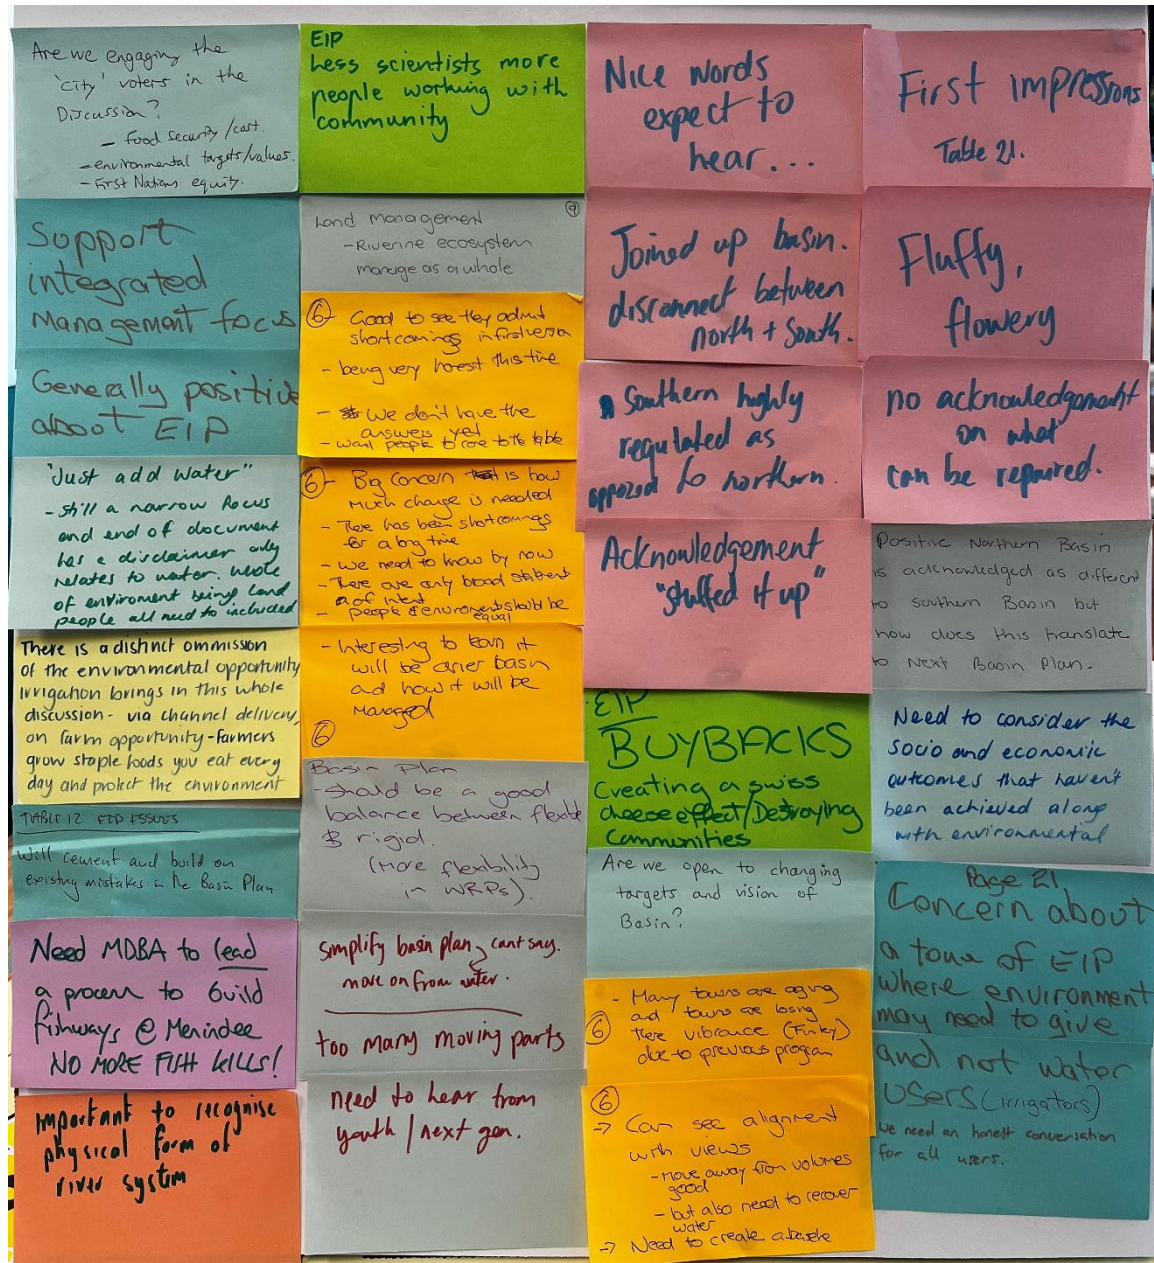 Are we engaging the
'city' voters in the
Discussion?
- food security/cost.
- environmental targets/values.
- First Nations equity.
Support
integrated
Management focus
Generally positive
about EIP
"Just add water"
- still a narrow focus
and end of document
has a disclaimer only
relates to water. Whole
of enviroment being land
people all need to included
There is a distinct ommission
of the environmental opportunity
irrigation brings in this whole
discussion - via channel delivery,
on farm opportunity - farmers
grow staple foods you eat every
day and protect the environment
TABLE 12 EIP ISSUES
Will cement and build on
existing mistakes in the Basin Plan
Need MDBA to lead
a process to build
fishways @ Menindee
NO MORE FISH KILLS!
important to recognise
physical form of
river system
EIP
Less scientists more
people working with
community
Land Management
9
- Riverine ecosystem
manage as a whole
6 - Good to see they admit
shortcomings in first version
- being very honest this time
- we don't have the
answers yet
- want people to come to the table
6 - Big concern is how
much change is needed
- There has been shortcomings
for a long time
- we need to know by now
- There are only broad statement
of intent
- people & environment should be
equal
- Interesting to learn it
will be over basin
and how it will be
managed
6
Basin Plan
- should be a good
balance between flexible
& rigid.
(More flexibility
in WRPs).
simplify basin plan cant say.
move on from water.
too many moving parts
need to hear from
youth / next gen.
Nice words
expect to
hear...
Joined up basin.
disconnect between
north + South.
Southern highly
regulated as
opposed to northern.
Acknowledgement
"stuffed it up"
EIP
BUYBACKS
Creating a swiss
cheese effect/Destroying
Communities
Are we open to changing
targets and vision of
Basin?
- Many towns are aging
and towns are losing
6 there vibrance (Finley)
due to previous program
6
→ Can see alignment
with views
- Move away from volumes
good
- but also need to recover
water
→ Need to create a
First impressions
Table 21.
Fluffy,
flowery
no acknowledgement
on what
can be repaired.
Positive Northern Basin
is acknowledged as different
to southern Basin but
how does this translate
to Next Basin Plan.
Need to consider the
socio and economic
outcomes that haven't
been achieved along
with environmental
Page 21
Concern about
a tone of EIP
where environment
may need to give
and not water
users (irrigators)
we need an honest conversation
for all users.